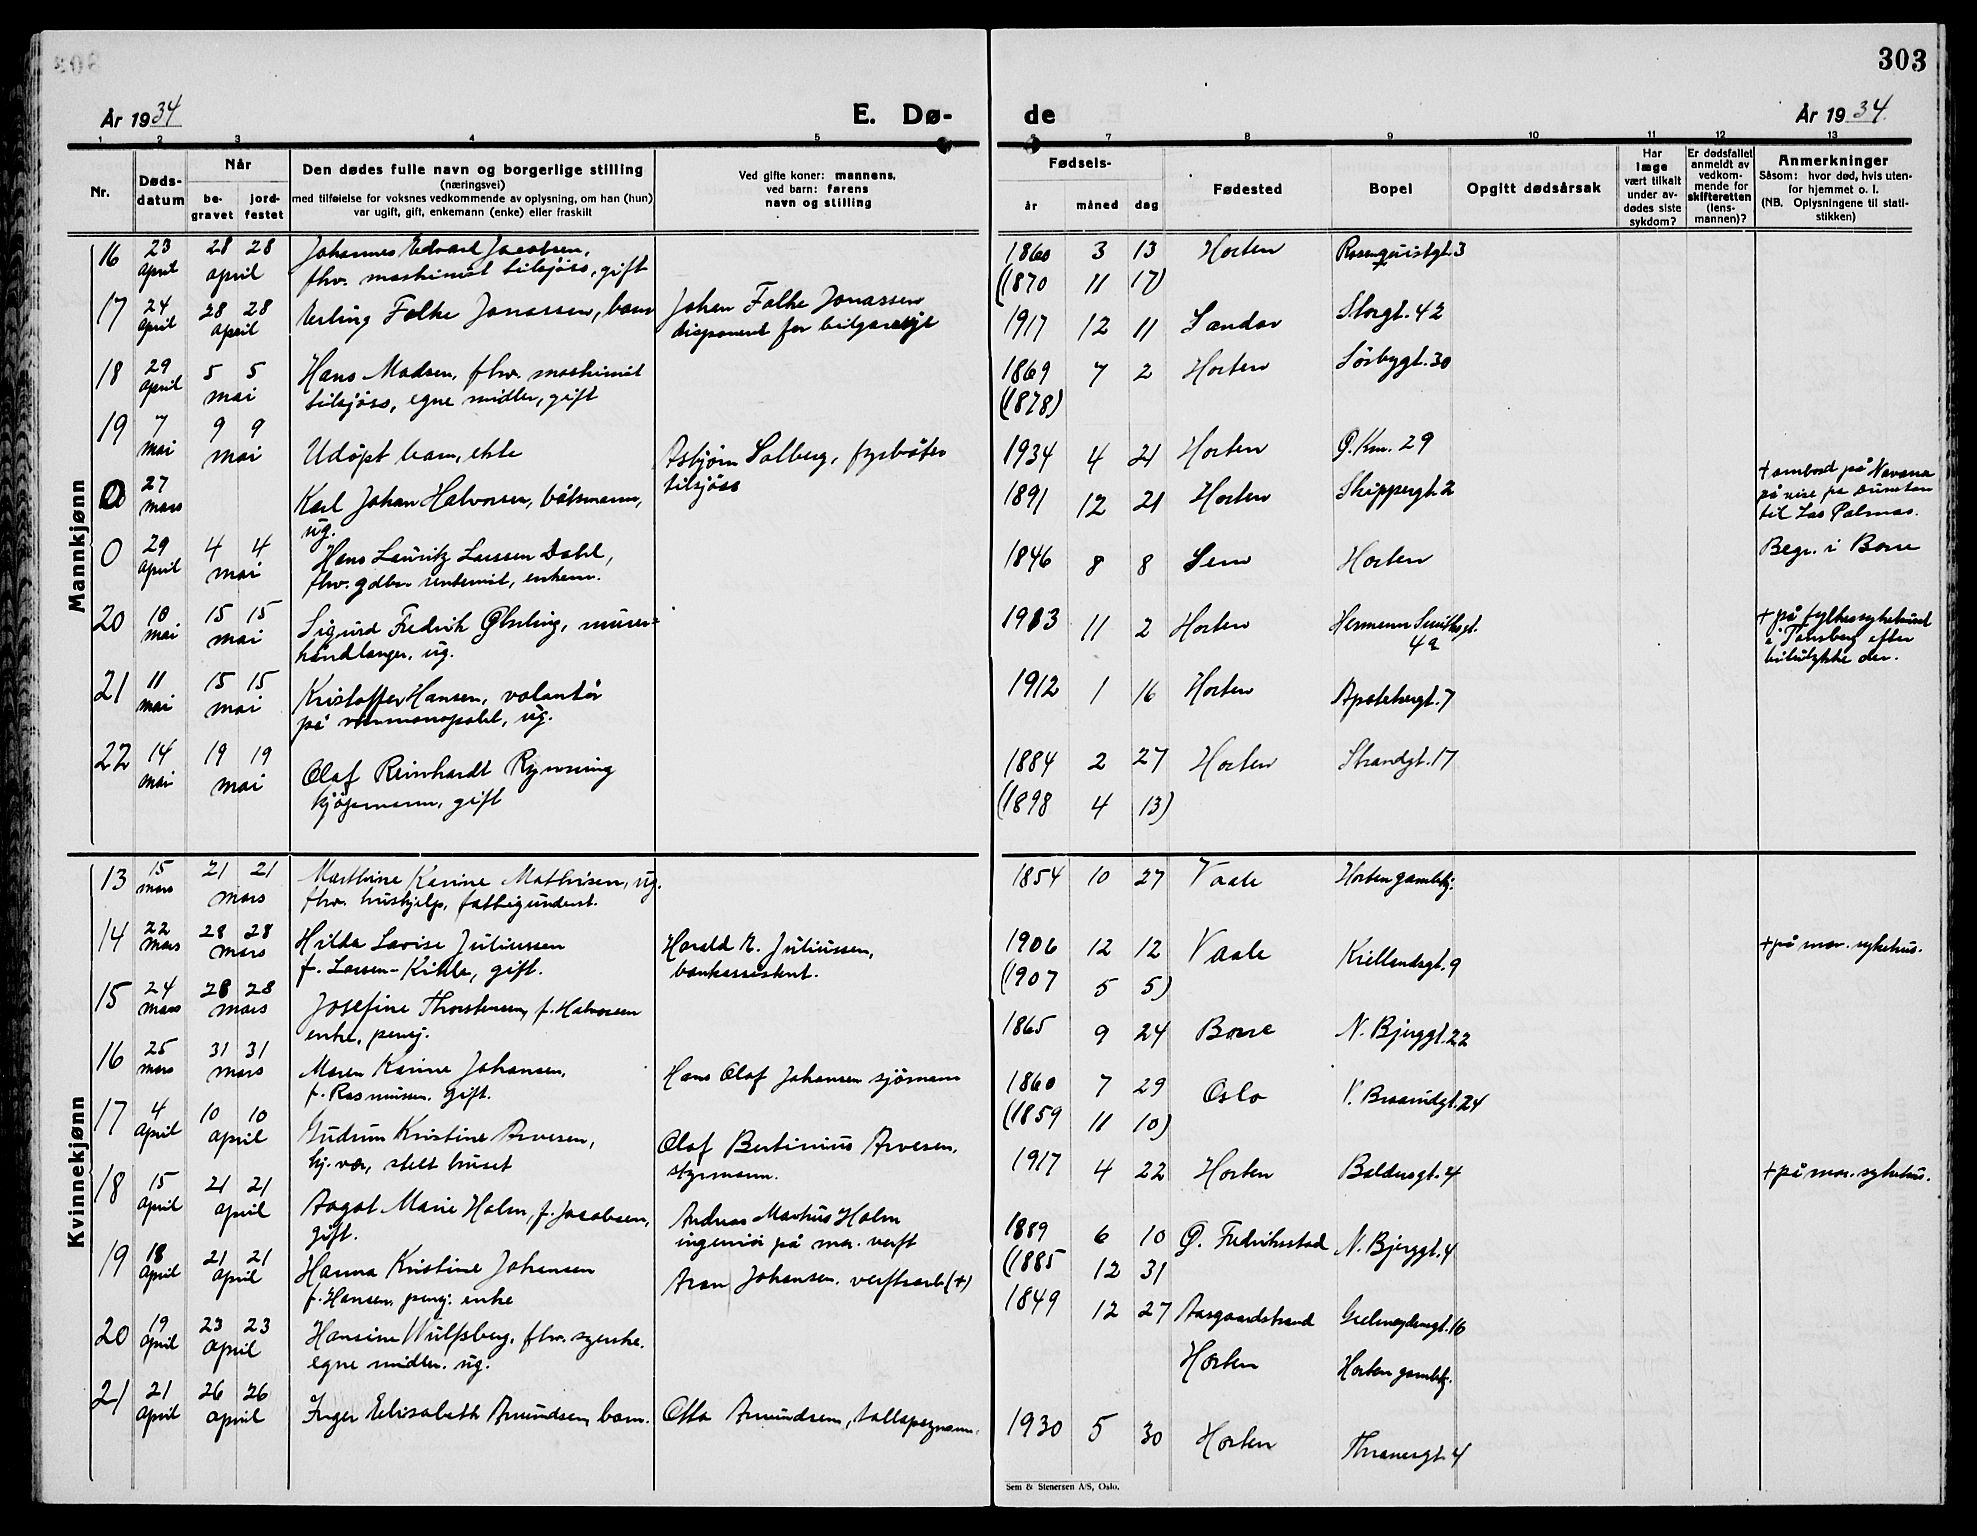 303
År 1934
E. Dø-
de
År 1934
1 2 3 4 5 6 7 8 9 10 11 12 13
Nr.
Døds-
datum
Når
be-
gravet
jord-
festet
Den dødes fulle navn og borgerlige stilling
(næringsvei)
med tilføielse for voksnes vedkommende av oplysning, om han (hun)
var ugift, gift, enkemann (enke) eller fraskilt
Ved gifte koner: mannens,
ved barn: farens
navn og stilling
Fødsels-
år måned dag
Fødested
Bopel
Opgitt dødsårsak
Har
læge
vært tilkalt
under av-
dødes siste
sykdom?
Er dødsfallet
anmeldt av
vedkom-
mende for
skifteretten
(lens-
mannen)?
Anmerkninger
Såsom: hvor død, hvis uten-
for hjemmet o. l.
(NB. Oplysningene til stati-
stikken)
Mannkjønn
16 23 28 28 Johannes Edvard Jacobsen, 1860 3 13 Horten Rosenquistgt. 3
april april fhv. maskinist tilsjøss, gift (1870 11 17)
17 24 28 28 Erling Falke Jonassen, barn Johan Falke Jonassen 1917 12 11 Sandar Storgt. 42
april april disponent for
18 29 5 5 Hans Madsen, fhv. maskinist 1869 7 2 Horten Sörbygt. 30
april mai tilsjöss, egne midler, gift (1878)
19 7 9 9 Udöpt barn, ekte Asbjörn Solberg, fyrböter 1934 4 21 Horten Ø. Km. 29
mai mai tilsjöss
0 27 Karl Johan Halvorsen, båtsmann, 1891 12 21 Horten Skippergt. 2 + ombord på Navana
mars ug. på reise fra
til Las Palmas.
0 29 4 4 Hans Lauritz Larssen Dahl, 1846 8 8 Sem Horten Begr. i Borre
april mai fhv. gdbr. rentenist, enkem.
20 10 15 15 Sigurd Fredrik Øhrling, murer- 1913 11 2 Horten Hermann Smithsgt. + på fylkessykehuset
mai mai håndlanger, ug. 4a i Tönsberg efter
bilulykke der.
21 11 15 15 Kristoffer Hansen, volontör 1912 1 16 Horten Apotekergt. 7
mai mai på vinmonopolet, ug.
22 14 19 19 Olaf Reinhardt Rynning 1884 2 27 Horten Strandgt. 17
mai mai kjöpmann, gift (1898 4 13)
Kvinnekjønn
13 15 21 21 Marthine Karine Mathisen, ug. 1854 10 27 Vaale Horten gamlehj.
mars mars fhv. hushjelp, fattigunderst.
14 22 28 28 Hilda Lovise Juliussen Harald M. Juliussen, 1906 12 12 Vaale Kiellandsgt. 9 + på mar. sykehus.
mars mars f. Larsen-Kihle, gift. bankassistent. (1907 5 5)
15 24 28 28 Josefine Thorstensen, f. Halvorsen 1865 9 24 Borre N. Bjerggt. 22
mars mars enke, pensj.
16 25 31 31 Maren Karine Johansen, Hans Olaf Johansen sjömann 1860 7 29 Oslo V. Braarudgt. 24
mars mars f. Rasmussen. gift. (1859 11 10)
17 4 10 10 Gudrun Kristine Arvesen, Olaf Bertinius Arvesen, 1917 4 22 Horten Baldersgt. 4 + på mar. sykehus.
april april hj. vær, stelt huset styrmann.
18 15 21 21 Aagot Marie Holm, f. Jacobsen, Andreas Markus Holm 1889 6 10 Ø. Fredriksstad N. Bjerggt. 4
april april gift. ingeniör på mar. verft (1885 12 31
19 18 21 21 Hanna Kristine Johansen Aron Johansen. verftsarb. (+) 1849 12 27 Aasgaardstrand
april april f. Hansen, pensj. enke
20 19 23 23 Hansine Wulfsberg, fhv. syerske. Horten Horten gamlehj.
april april egne midler. ug.
21 21 26 26 Inger Elisabeth Amundsen, barn. Otto Amundsen, tolloppsynsm. 1930 5 30 Horten Thranesgt. 4
april april
Sem & Stenersen A/S, Oslo.